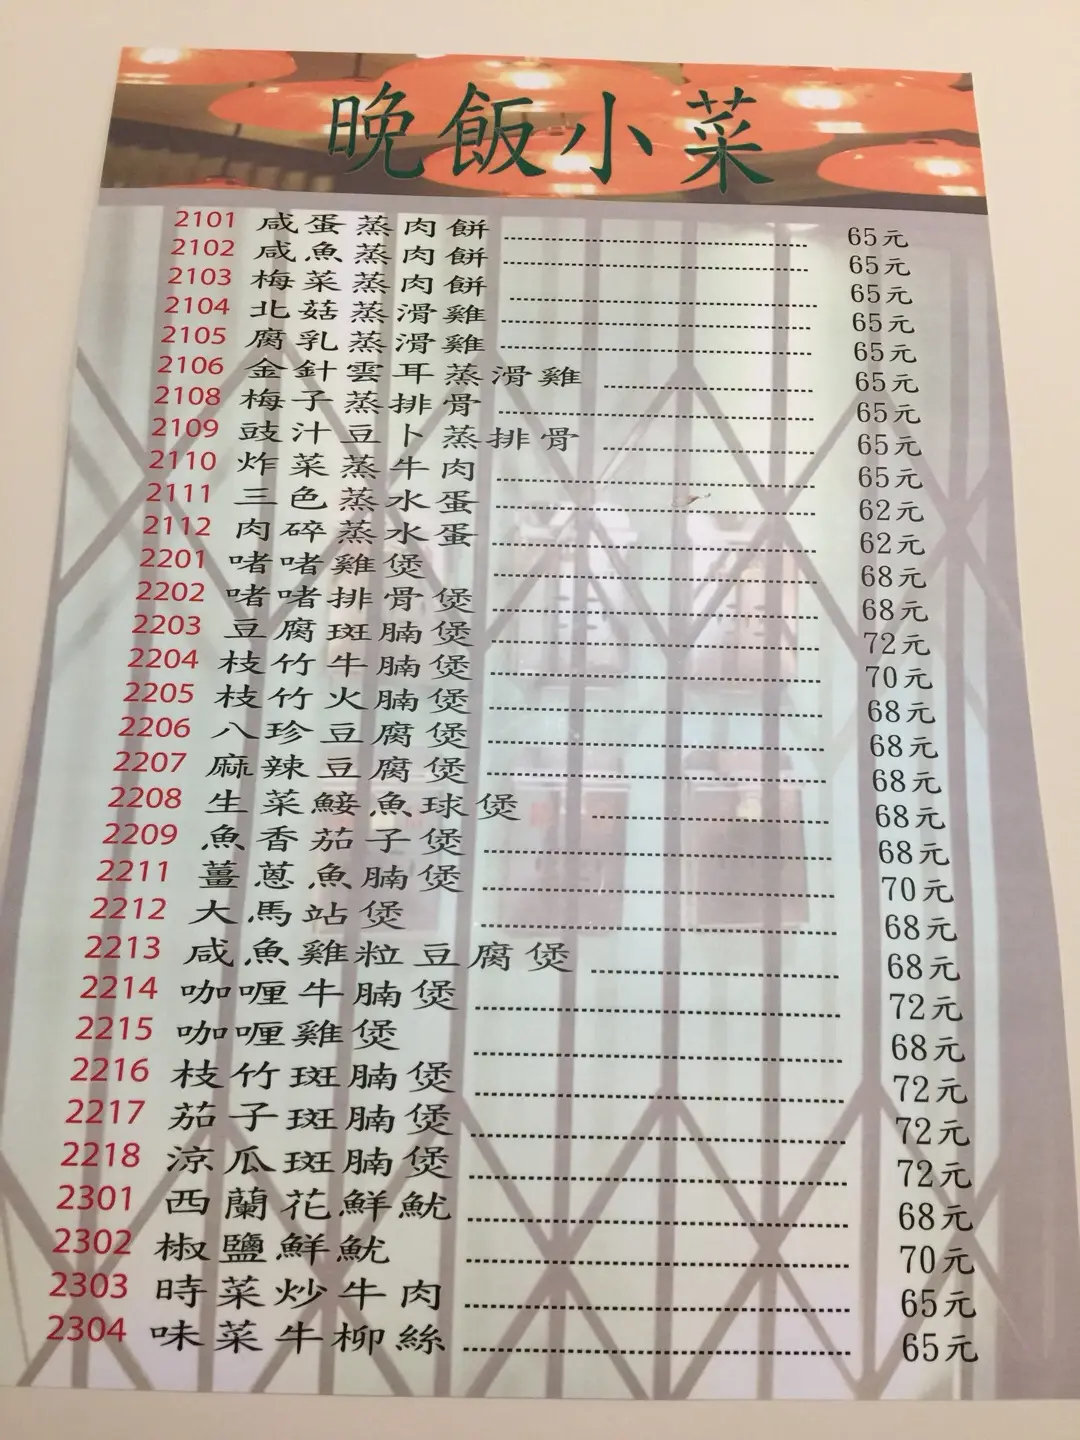 晚飯小菜
2101 咸蛋蒸肉餅 65元
2102 咸魚蒸肉餅 65元
2103 梅菜蒸肉餅 65元
2104 北菇蒸滑雞 65元
2105 腐乳蒸滑雞 65元
2106 金針雲耳蒸滑雞 65元
2108 梅子蒸排骨 65元
2109 豉汁豆卜蒸排骨 65元
2110 炸菜蒸牛肉 65元
2111 三色蒸水蛋 62元
2112 肉碎蒸水蛋 62元
2201 啫啫雞煲 68元
2202 啫啫排骨煲 68元
2203 豆腐斑腩煲 72元
2204 枝竹牛腩煲 70元
2205 枝竹火腩煲 68元
2206 八珍豆腐煲 68元
2207 麻辣豆腐煲 68元
2208 生菜鯪魚球煲 68元
2209 魚香茄子煲 68元
2211 薑蔥魚腩煲 70元
2212 大馬站煲 68元
2213 咸魚雞粒豆腐煲 68元
2214 咖喱牛腩煲 72元
2215 咖喱雞煲 68元
2216 枝竹斑腩煲 72元
2217 茄子斑腩煲 72元
2218 涼瓜斑腩煲 72元
2301 西蘭花鮮魷 68元
2302 椒鹽鮮魷 70元
2303 時菜炒牛肉 65元
2304 味菜牛柳絲 65元